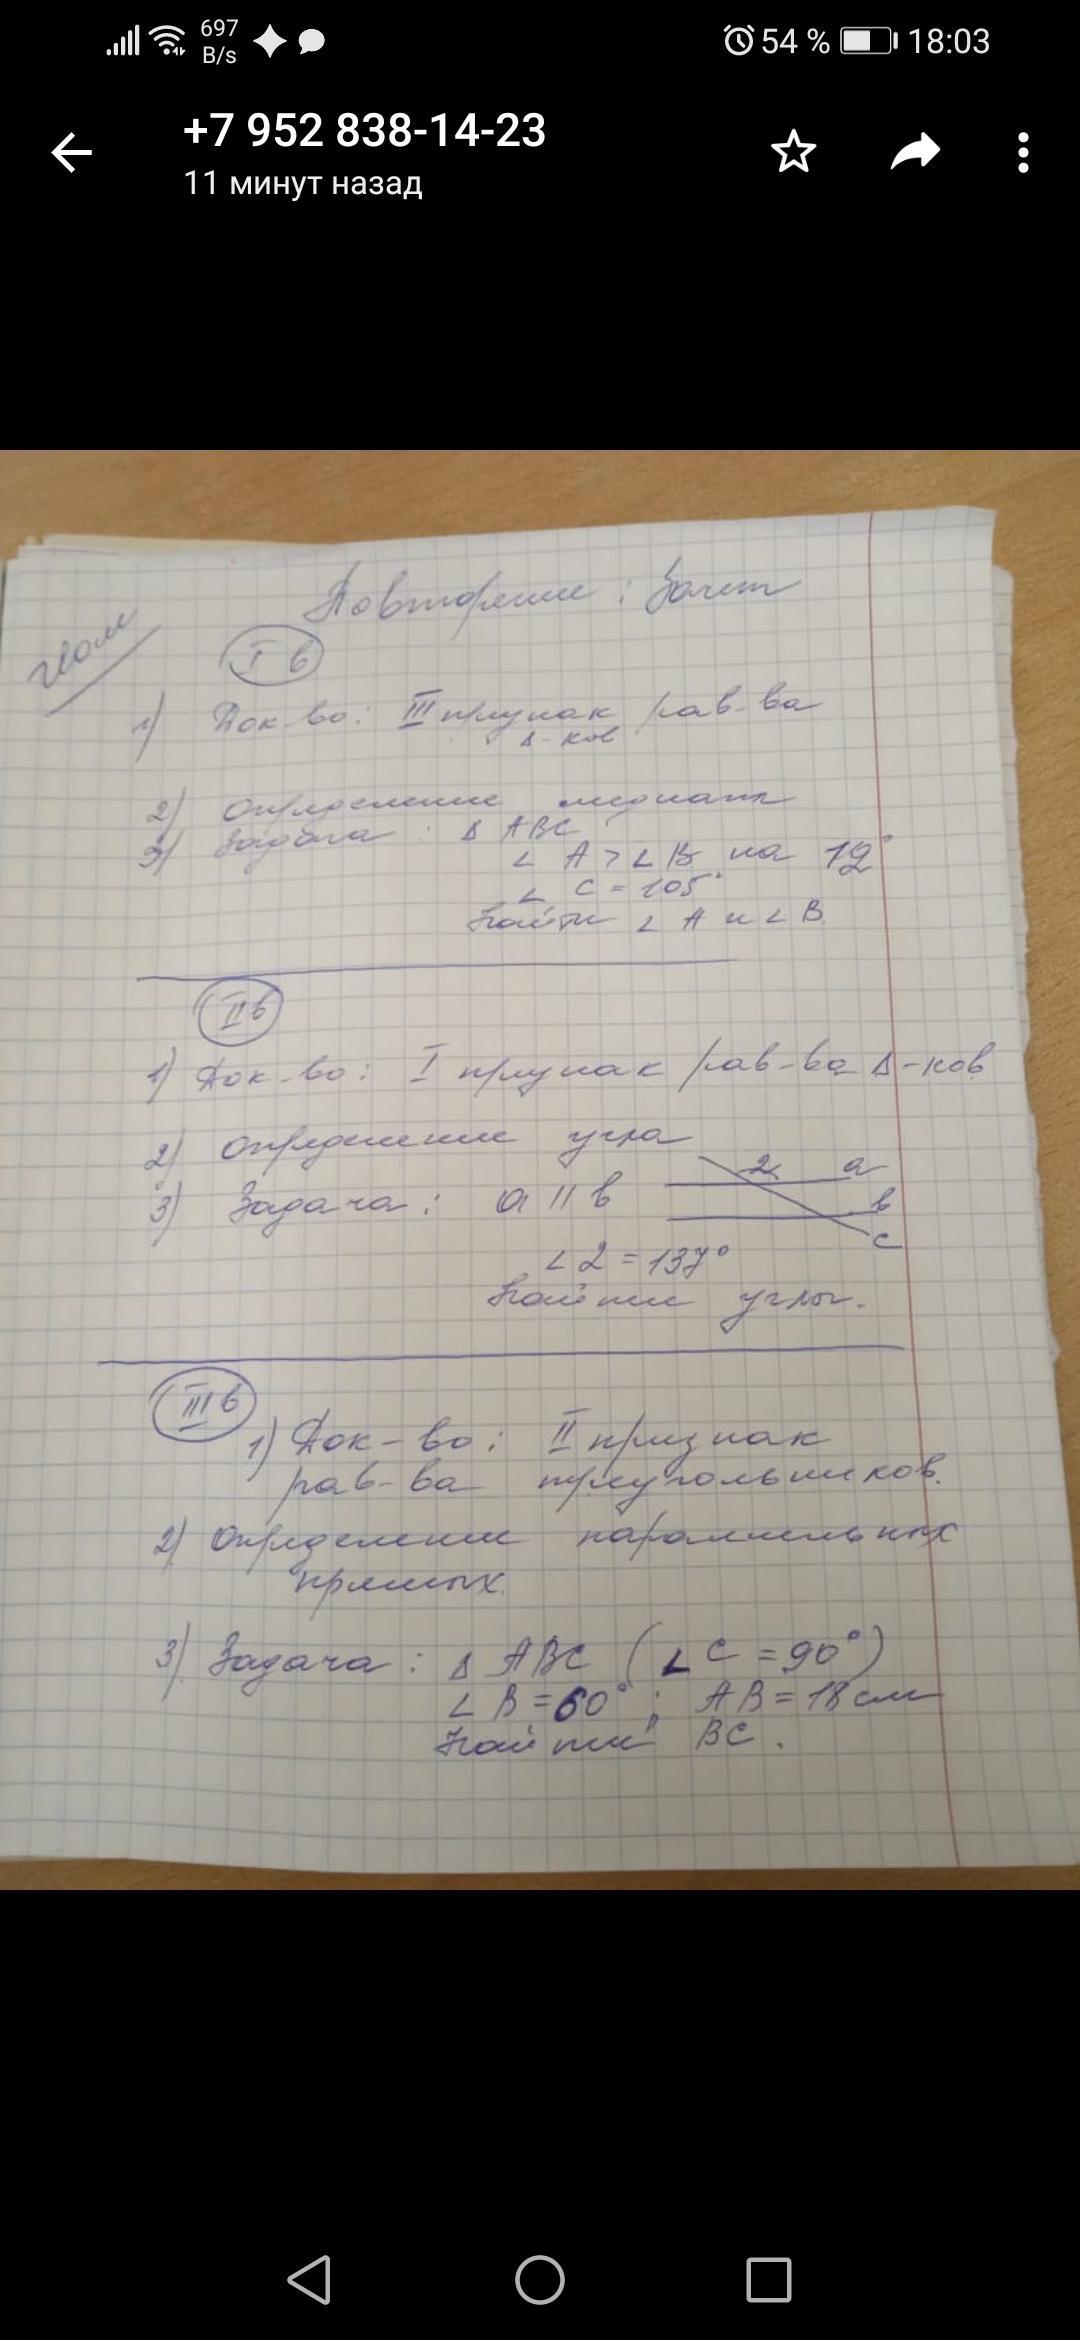 697
B/s
54 %
18:03
+7 952 838-14-23
11 минут назад
Повторение: Зачет
Геом
I в
1) Док-во: III признак рав-ва
Δ-ков
2) Определение медианы
3) Задача: Δ ABC
∠ A > ∠ B на 12°
∠ C = 105°
Найти ∠ A и ∠ B.
II в
1) Док-во: I признак рав-ва Δ-ков
2) Определение угла
3) Задача: a || b
2 a
b
c
∠ 2 = 137°
Найти углы.
III в
1) Док-во: II признак
рав-ва треугольников.
2) Определение параллельных
прямых.
3) Задача: Δ ABC (∠ C = 90°)
∠ B = 60°; AB = 18 см
Найти BC.